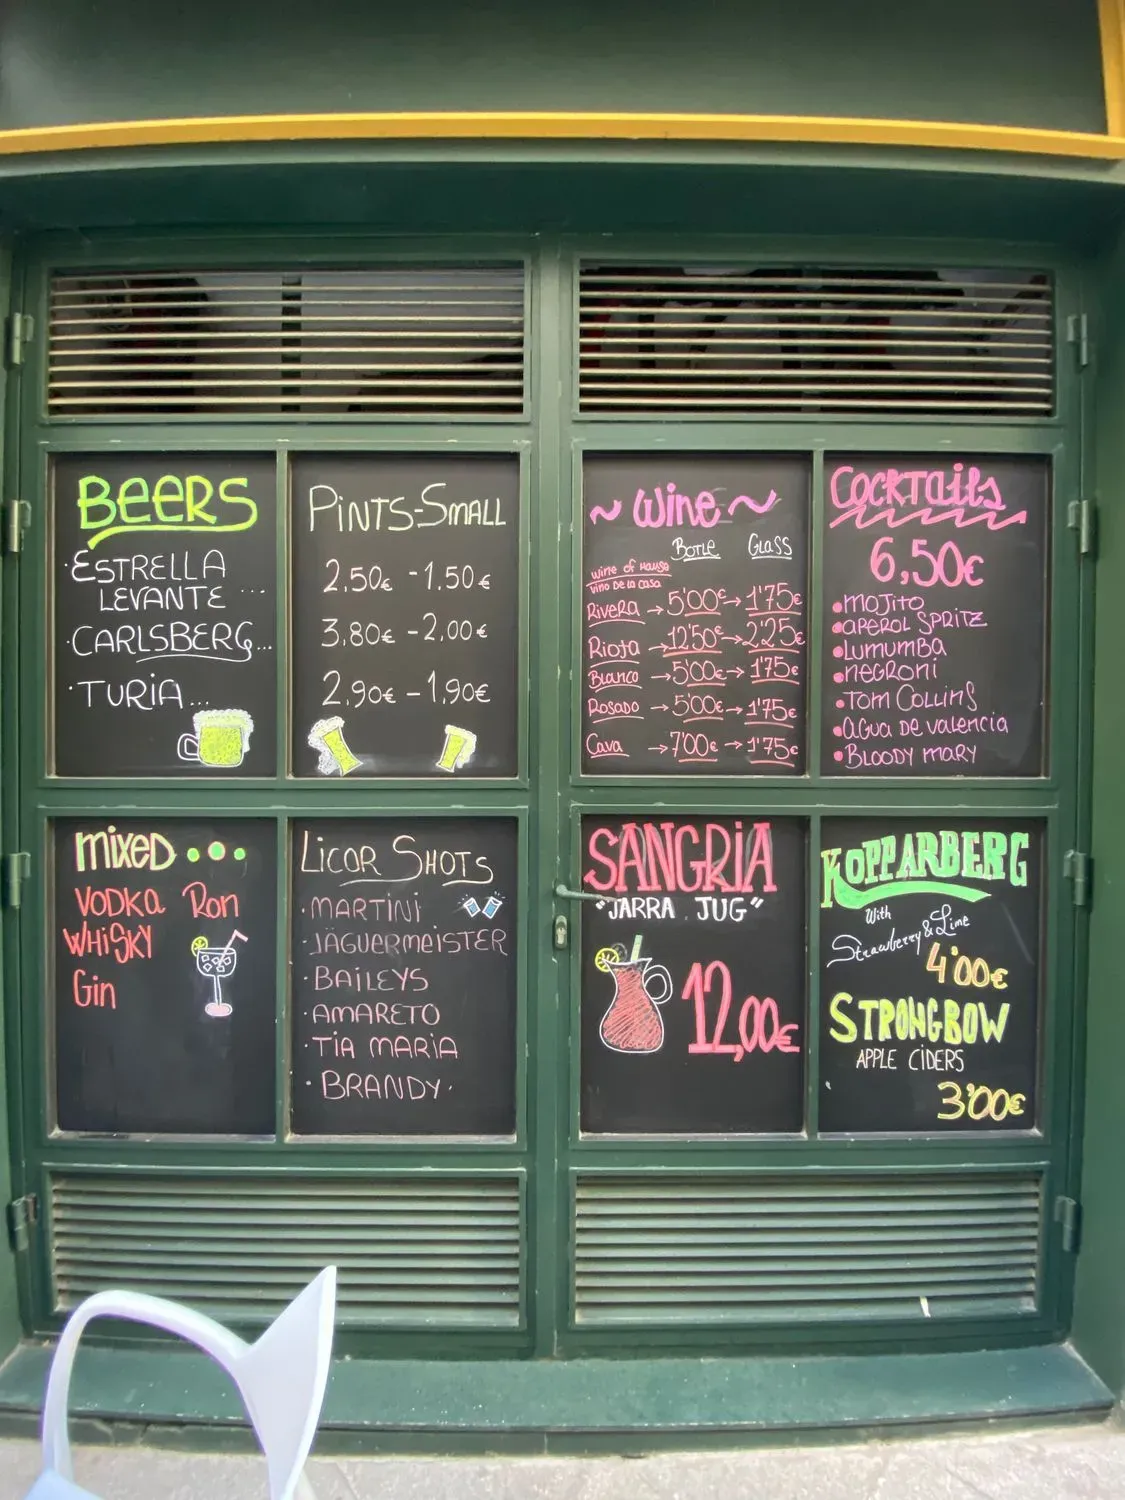 BEERS
·ESTRELLA
LEVANTE ...
·CARLSBERG...
·TURIA...
PINTS-SMALL
2,50€ -1,50€
3,80€ -2,00€
2,90€ -1,90€
~ Wine ~
BOTLE GLASS
WINE OF HAUSE
VINO DE LA CASA
RIVERA → 5'00€ → 1'75€
RIOJA → 12'50€ → 2'25€
BLANCO → 5'00€ → 1'75€
ROSADO → 5'00€ → 1'75€
CAVA → 7'00€ → 1'75€
COCKTAILS
6,50€
•MOJITO
•APEROL SPRITZ
•LUMUMBA
•NEGRONI
·TOM COLLINS
•AGUA DE VALENCIA
•BLOODY MARY
MIXED...
VODKA Ron
WHISKY
Gin
LICOR SHOTS
·MARTINI
·JÄGUERMEISTER
·BAILEYS
·AMARETO
·TIA MARIA
·BRANDY·
SANGRIA
"JARRA JUG"
12,00€
KOPPARBERG
With
Strawberry & Lime
4'00€
STRONGBOW
APPLE CIDERS
3'00€